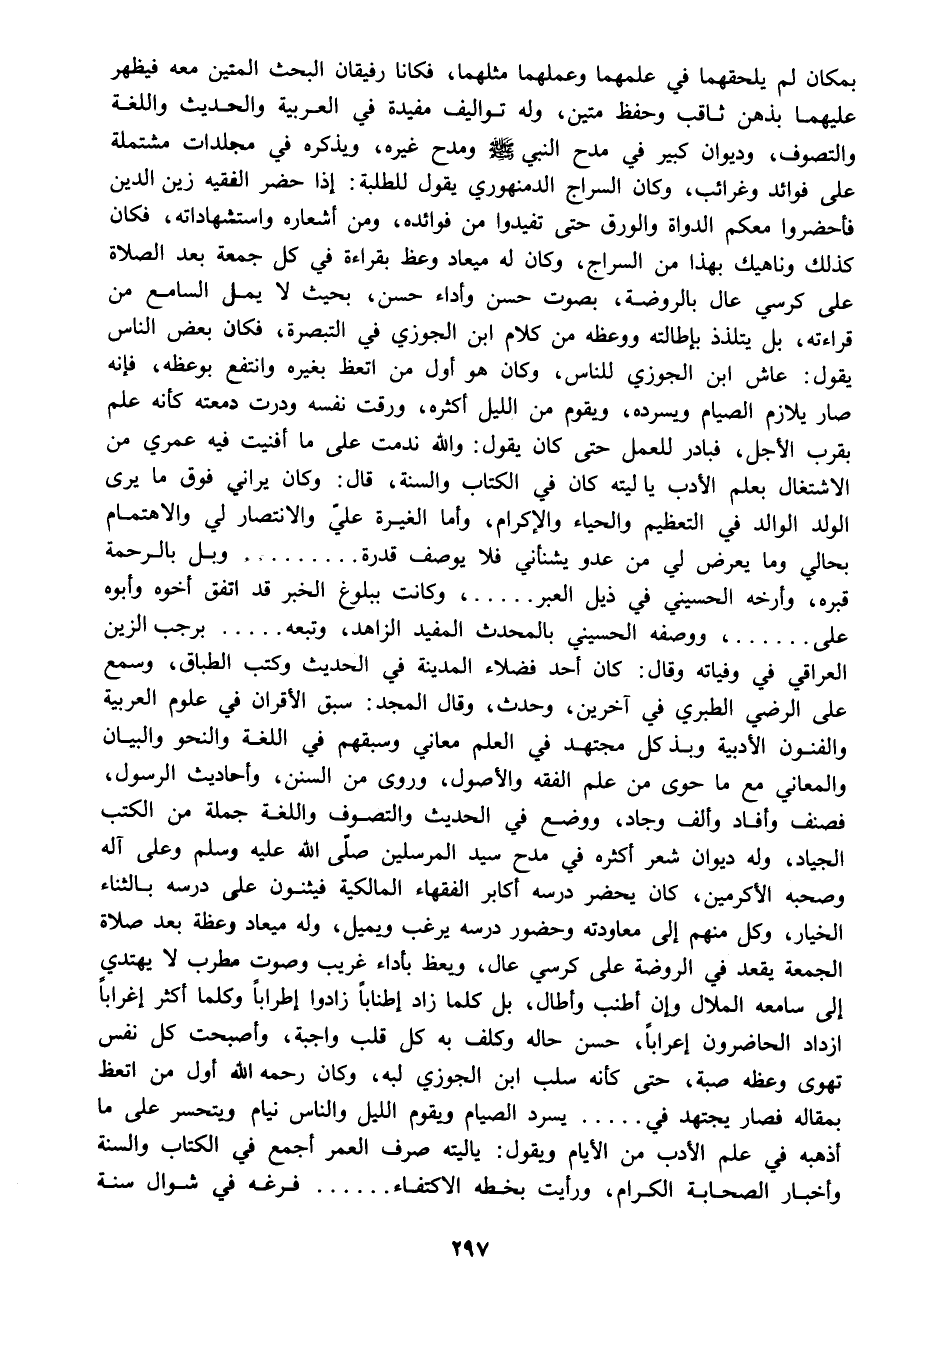 بمكان لم يلحقهما في علمهما وعملهما مثلهما، فكانا رفيقان البحث المتين معه فيظهر
عليهما بذهن ثاقب وحفظ متين، وله تواليف مفيدة في العربية والحديث واللغة
والتصوف، وديوان كبير في مدح النبي ﷺ ومدح غيره، ويذكره في مجلدات مشتملة
على فوائد وغرائب، وكان السراج الدمنهوري يقول للطلبة: إذا حضر الفقيه زين الدين
فأحضروا معكم الدواة والورق حتى تفيدوا من فوائده، ومن أشعاره واستشهاداته، فكان
كذلك وناهيك بهذا من السراج، وكان له ميعاد وعظ بقراءة في كل جمعة بعد الصلاة
على كرسي عال بالروضة، بصوت حسن وأداء حسن، بحيث لا يمل السامع من
قراءته، بل يتلذذ بإطالته ووعظه من كلام ابن الجوزي في التبصرة، فكان بعض الناس
يقول: عاش ابن الجوزي للناس، وكان هو أول من اتعظ بغيره وانتفع بوعظه، فإنه
صار يلازم الصيام ويسرده، ويقوم من الليل أكثره، ورقت نفسه ودرت دمعته كأنه علم
بقرب الأجل، فبادر للعمل حتى كان يقول: والله ندمت على ما أفنيت فيه عمري من
الاشتغال بعلم الأدب يا ليته كان في الكتاب والسنة، قال: وكان يراني فوق ما يرى
الولد الوالد في التعظيم والحياء والإكرام، وأما الغيرة عليّ والانتصار لي والاهتمام
بحالي وما يعرض لي من عدو يشنأني فلا يوصف قدرة.......... وبل بالرحمة
قبره، وأرخه الحسيني في ذيل العبر......، وكانت ببلوغ الخبر قد اتفق أخوه وأبوه
على.......، ووصفه الحسيني بالمحدث المفيد الزاهد، وتبعه..... برجب الزين
العراقي في وفياته وقال: كان أحد فضلاء المدينة في الحديث وكتب الطباق، وسمع
على الرضي الطبري في آخرين، وحدث، وقال المجد: سبق الأقران في علوم العربية
والفنون الأدبية وبذ كل مجتهد في العلم معاني وسبقهم في اللغة والنحو والبيان
والمعاني مع ما حوى من علم الفقه والأصول، وروى من السنن، وأحاديث الرسول،
فصنف وأفاد وألف وجاد، ووضع في الحديث والتصوف واللغة جملة من الكتب
الجياد، وله ديوان شعر أكثره في مدح سيد المرسلين صلّى الله عليه وسلم وعلى آله
وصحبه الأكرمين، كان يحضر درسه أكابر الفقهاء المالكية فيثنون على درسه بالثناء
الخيار، وكل منهم إلى معاودته وحضور درسه يرغب ويميل، وله ميعاد وعظة بعد صلاة
الجمعة يقعد في الروضة على كرسي عال، ويعظ بأداء غريب وصوت مطرب لا يهتدي
إلى سامعه الملال وإن أطنب وأطال، بل كلما زاد إطناباً زادوا إطراباً وكلما أكثر إغراباً
ازداد الحاضرون إعراباً، حسن حاله وكلف به كل قلب واجبة، وأصبحت كل نفس
تهوى وعظه صبة، حتى كأنه سلب ابن الجوزي لبه، وكان رحمه الله أول من اتعظ
بمقاله فصار يجتهد في..... يسرد الصيام ويقوم الليل والناس نيام ويتحسر على ما
أذهبه في علم الأدب من الأيام ويقول: ياليته صرف العمر أجمع في الكتاب والسنة
وأخبار الصحابة الكرام، ورأيت بخطه الاكتفاء...... فرغه في شوال سنة
٢٩٧